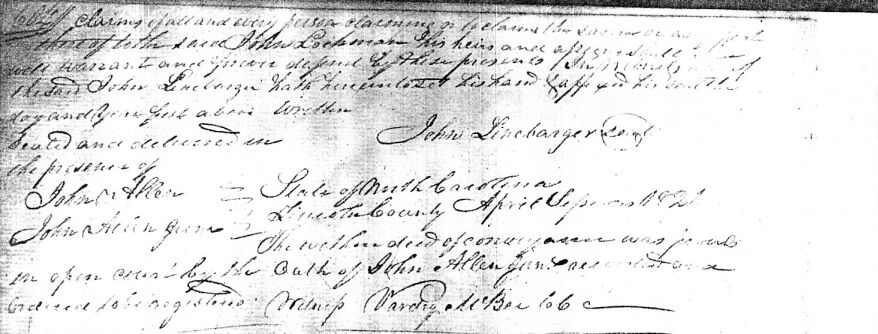 claims of all and every person claiming or to claim the same or any part
thereof to him said John Lochman his heirs and assigns shall &
well warrant and forever defend by these presents In
the said John Linebarger hath hereunto set his hand & affixed his seal the
day and year first above written
Sealed and delivered in John Linebarger Seal
the presence of
John Allen State of North Carolina
John Allen Junr Lincoln County April Sessions
The within deed of conveyance was proved
in open court by the Oath of John Allen Junr recorded and
Ordered to be registered Witness Vardry McBee CCC